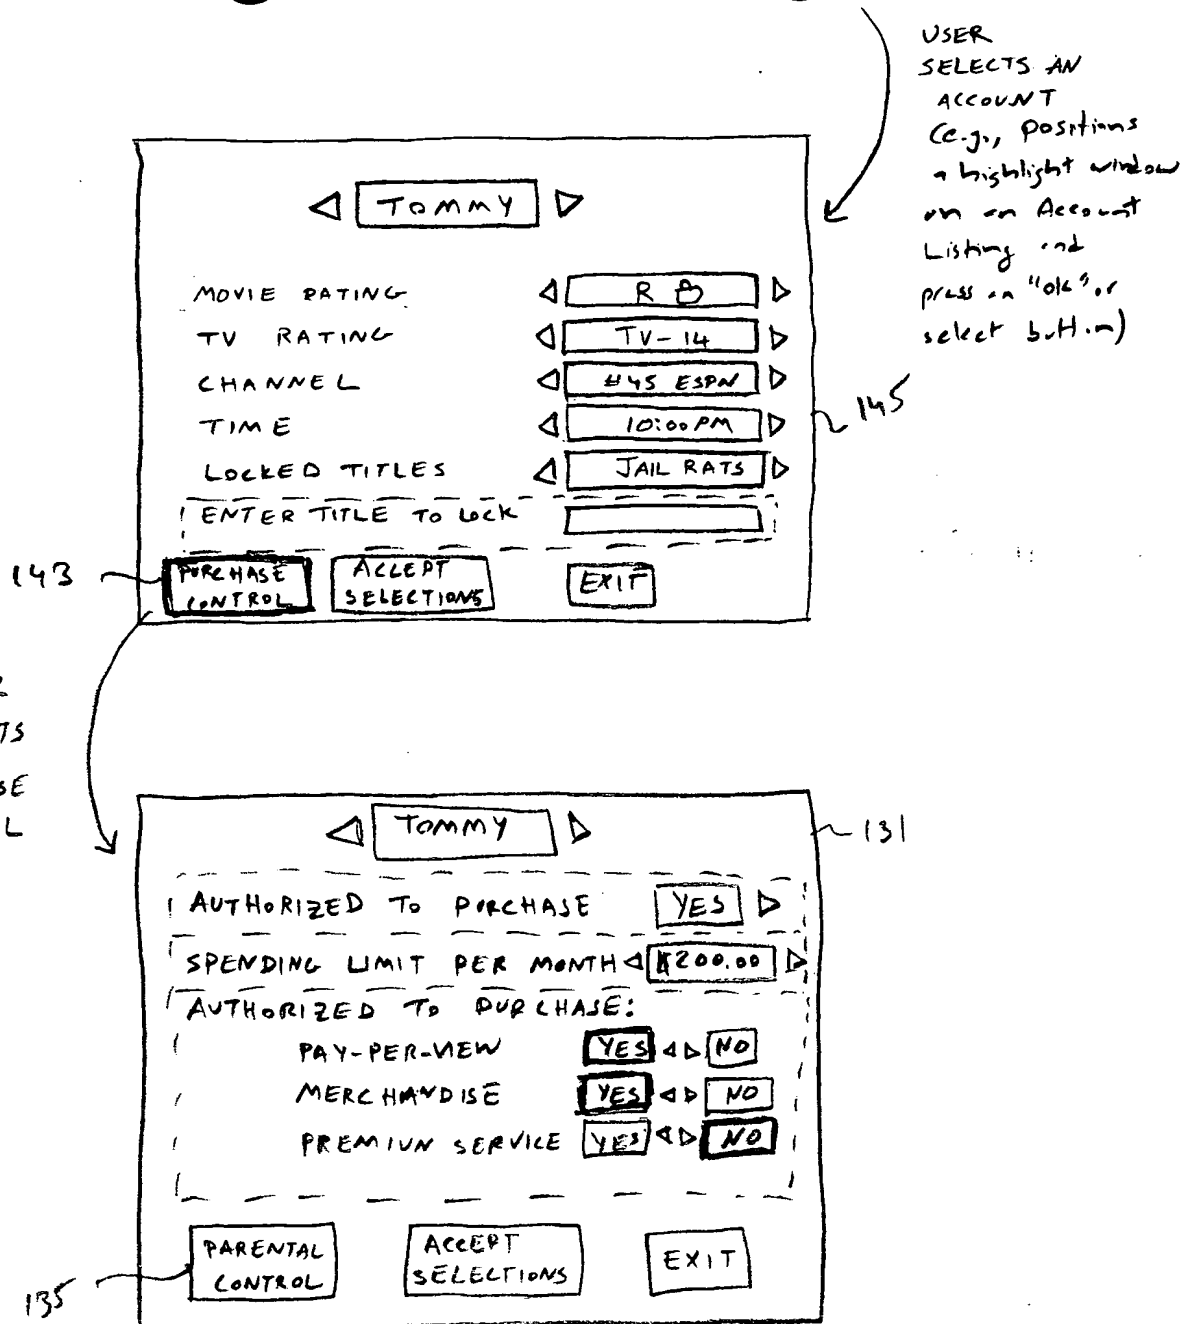 USER
SELECTS AN
ACCOUNT
(e.g., positions
a highlight window
on an Account
Listing and
press an "ok" or
select button)
TOMMY
MOVIE RATING R
TV RATING TV-14
CHANNEL #45 ESPN
TIME 10:00 PM
LOCKED TITLES JAIL RATS
ENTER TITLE TO LOCK
145
143
PURCHASE
CONTROL
ACCEPT
SELECTIONS
EXIT
TS
SE
L
TOMMY
131
AUTHORIZED TO PURCHASE YES
SPENDING LIMIT PER MONTH $200.00
AUTHORIZED TO PURCHASE:
PAY-PER-VIEW YES NO
MERCHANDISE YES NO
PREMIUM SERVICE YES NO
PARENTAL
CONTROL
ACCEPT
SELECTIONS
EXIT
135